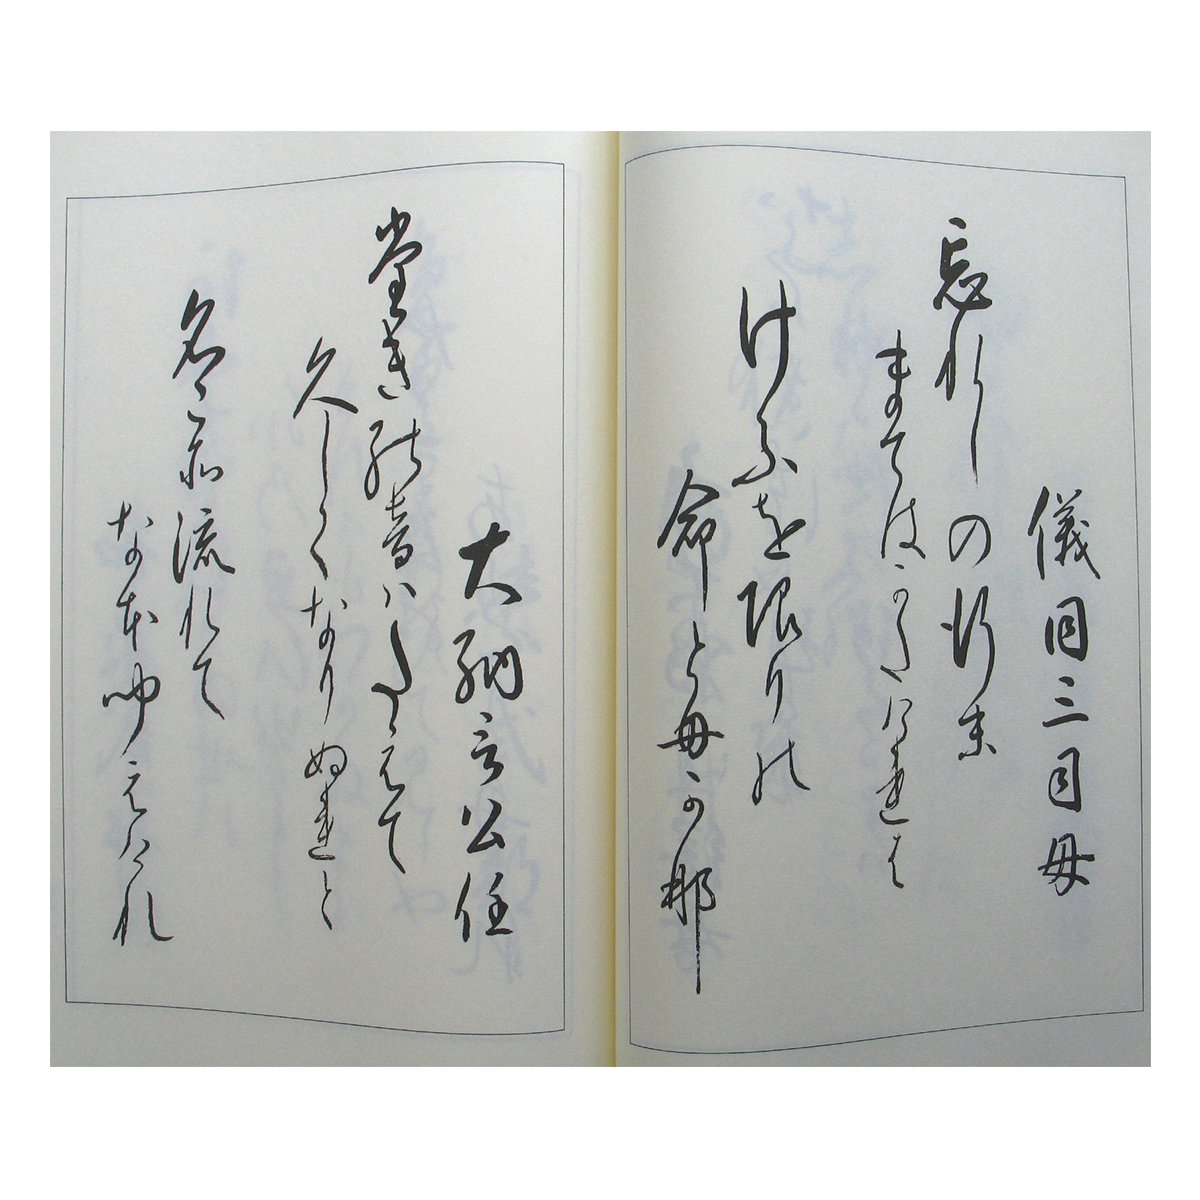 儀同三司母
忘れしの行末
まてはかたけれは
けふを限りの
命ともかな
大納言公任
たきの音はたえて
久しくなりぬれと
名こそ流れて
なほ聞えけれ